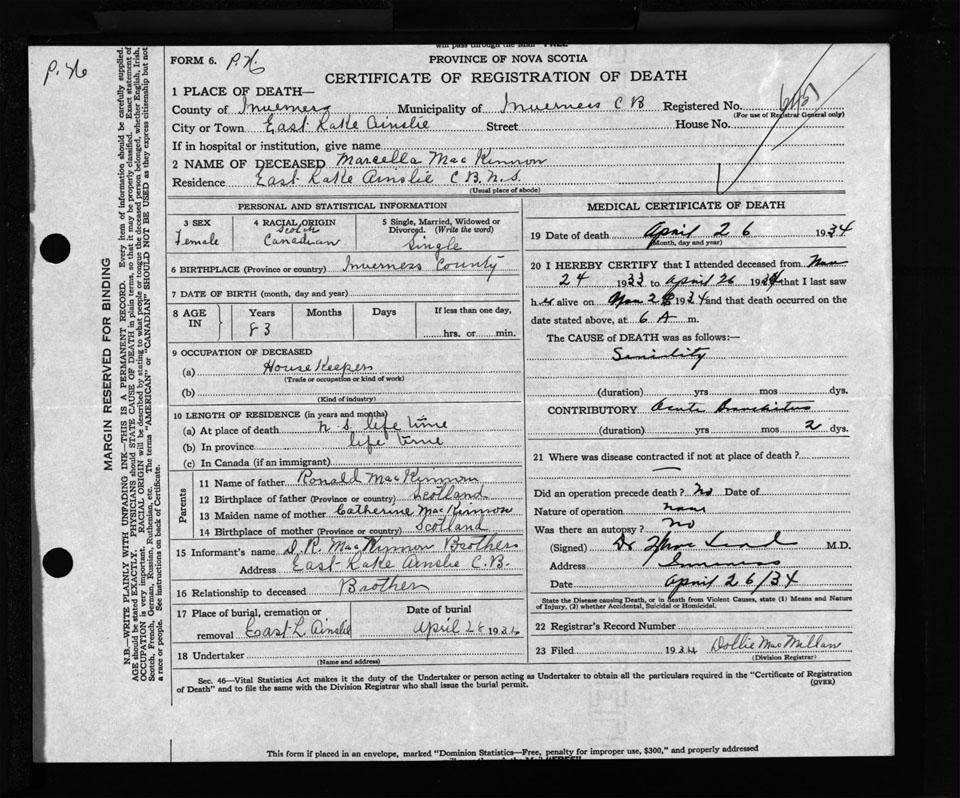 P. 76
will pass through the Mail "FREE"
FORM 6. P.X.
PROVINCE OF NOVA SCOTIA
CERTIFICATE OF REGISTRATION OF DEATH
1 PLACE OF DEATH—
County of Inverness Municipality of Inverness C B Registered No.
(For use of Registrar General only)
City or Town East Lake Ainslie Street House No.
If in hospital or institution, give name
2 NAME OF DECEASED Marcella MacKinnon
Residence East Lake Ainslie C B. N.S.
(Usual place of abode)
PERSONAL AND STATISTICAL INFORMATION
3 SEX Female
4 RACIAL ORIGIN Scotch Canadian
5 Single, Married, Widowed or Divorced. (Write the word) Single
6 BIRTHPLACE (Province or country) Inverness County
7 DATE OF BIRTH (month, day and year)
8 AGE IN Years 83 Months Days If less than one day, hrs. or min.
9 OCCUPATION OF DECEASED
(a) House Keeper
(Trade or occupation or kind of work)
(b)
(Kind of industry)
10 LENGTH OF RESIDENCE (in years and months)
(a) At place of death N. S. life time
(b) In province life time
(c) In Canada (if an immigrant)
Parents
11 Name of father Ronald MacKinnon
12 Birthplace of father (Province or country) Scotland
13 Maiden name of mother Catherine MacKinnon
14 Birthplace of mother (Province or country) Scotland
15 Informant's name D. R. MacKinnon Brother
Address East Lake Ainslie C.B.
16 Relationship to deceased Brother
17 Place of burial, cremation or removal East L. Ainslie
Date of burial April 28 1934
18 Undertaker
(Name and address)
MEDICAL CERTIFICATE OF DEATH
19 Date of death April 26 1934
(Month, day and year)
20 I HEREBY CERTIFY that I attended deceased from
24 1933 to April 26 1934 that I last saw
h er alive on 1934 and that death occurred on
date stated above, at 6 A m.
The CAUSE of DEATH was as follows:—
Senility
(duration) yrs mos dys.
CONTRIBUTORY Acute Bronchitis
(duration) yrs mos 2 dys.
21 Where was disease contracted if not at place of death?
—
Did an operation precede death? No Date of
Nature of operation none
Was there an autopsy? No
(Signed) Dr M.D.
Address Inverness
Date April 26/34
State the Disease causing Death, or in death from Violent Causes, state (1) Means and Nature
of Injury, (2) whether Accidental, Suicidal or Homicidal.
22 Registrar's Record Number
23 Filed 1934 Dollie MacMillan
(Division Registrar)
Sec. 46—Vital Statistics Act makes it the duty of the Undertaker or person acting as Undertaker to obtain all the particulars required in the "Certificate of Registration
of Death" and to file the same with the Division Registrar who shall issue the burial permit.
(OVER)
This form if placed in an envelope, marked "Dominion Statistics—Free, penalty for improper use, $300," and properly addressed
MARGIN RESERVED FOR BINDING
N.B.—WRITE PLAINLY WITH UNFADING INK—THIS IS A PERMANENT RECORD. Every item of information should be carefully supplied.
AGE should be stated EXACTLY. PHYSICIANS should STATE CAUSE OF DEATH in plain terms, so that it may be properly classified. Exact statement of
OCCUPATION is very important. RACIAL ORIGIN will be described by stating to what people or tongue the deceased person belonged, whether English, Irish,
Scotch, French, German, Russian, Ruthenian, etc. The terms "AMERICAN" or "CANADIAN" SHOULD NOT BE USED as they express citizenship but not
a race or people. See instructions on back of Certificate.